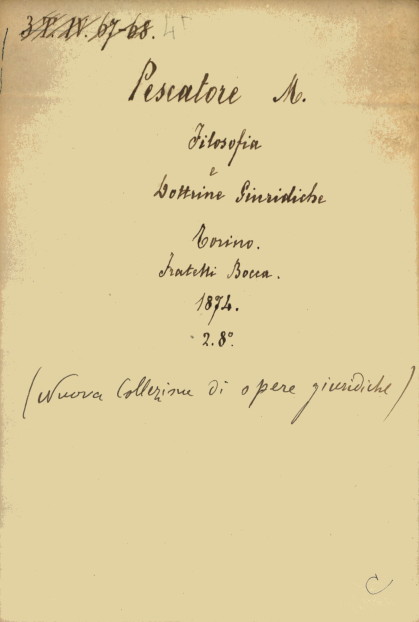 3.T.IV.67-68.
Pescatore M.
Filosofia
e
Dottrine Giuridiche
Torino.
Fratelli Bocca.
1874.
2. 8º.
(Nuova Collezione di opere giuridiche)
C